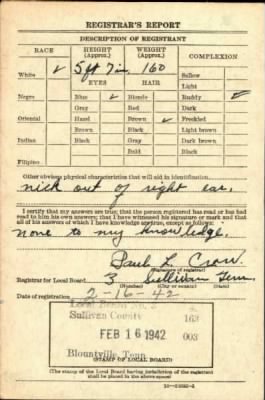 REGISTRAR'S REPORT
DESCRIPTION OF REGISTRANT
RACE HEIGHT (Approx.) WEIGHT (Approx.) COMPLEXION
White ✓ 5 ft 7 in. 160 Sallow
EYES HAIR Light
Negro Blue ✓ Blonde Ruddy ✓
Gray Red Dark
Oriental Hazel Brown ✓ Freckled
Brown Black Light brown
Indian Black Gray Dark brown
Bald Black
Filipino
Other obvious physical characteristics that will aid in identification
nick out of right ear.
I certify that my answers are true; that the person registered has read or has had
read to him his own answers; that I have witnessed his signature or mark and that
all of his answers of which I have knowledge are true, except as follows:
none to my knowledge.
Paul L Crow.
(Signature of registrar)
Registrar for Local Board 3 Sullivan Tenn.
(Number) (City or county) (State)
Date of registration 2-16-42
Local Board No. 3
Sullivan County 163
FEB 16 1942 003
Blountville, Tenn
(STAMP OF LOCAL BOARD)
(The stamp of the Local Board having jurisdiction of the registrant
shall be placed in the above space.)